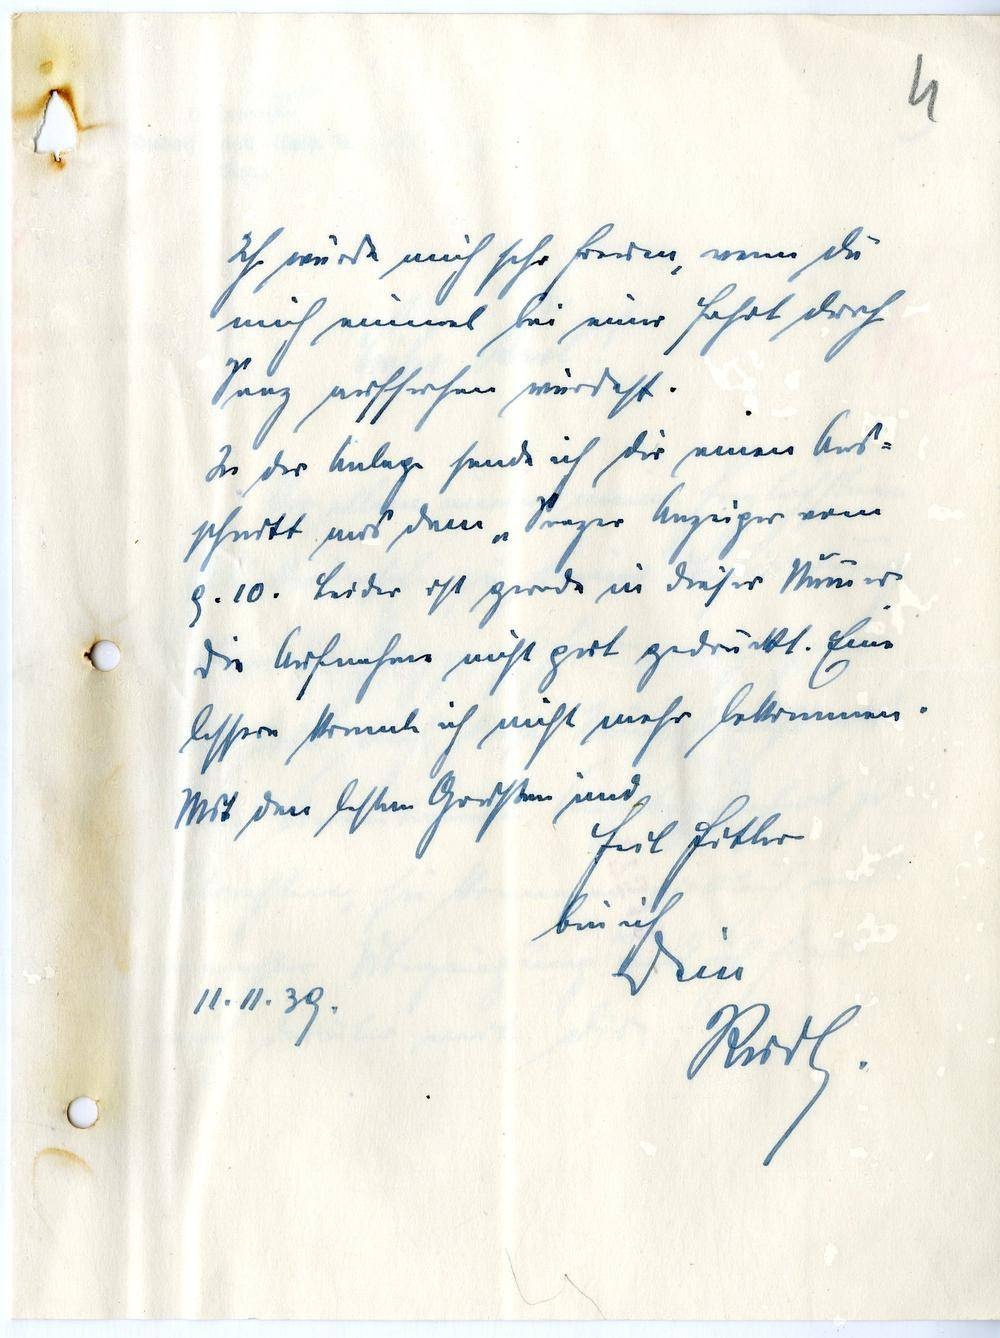 4
Ich würde mich sehr freuen, wenn Du
mich einmal bei einer Fahrt durch
aufsuchen würdest.
In der Anlage sende ich Dir einen Aus=
schnitt aus dem „ Anzeiger vom
9.10. Leider ist gerade in dieser Num̄er
die Aufnahme nicht gut gedruckt. Eine
bessere konnte ich nicht mehr bekommen.
Mit den besten Grüssen und
Heil Hitler
bin ich
Dein
11.11.39.